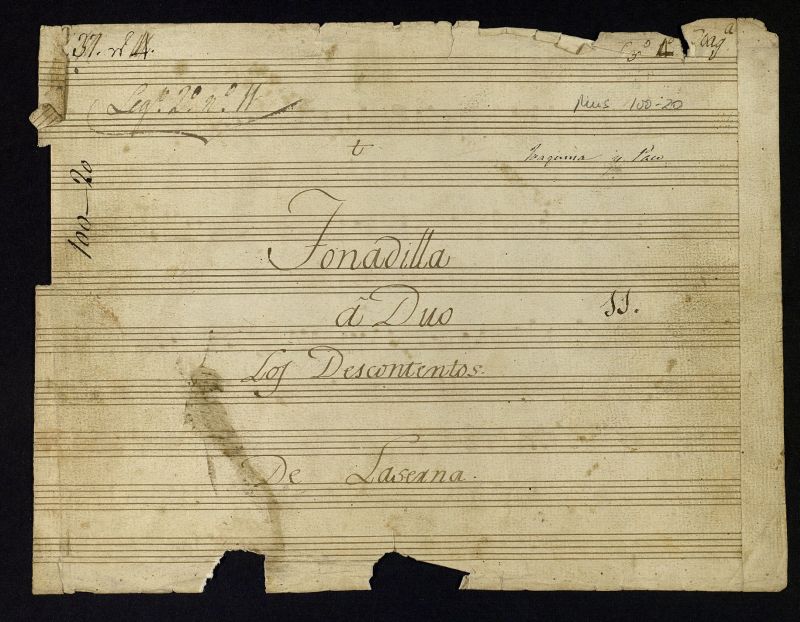 37. nº 11.
Legº 2º nº 11
Mus 100-20
t
Joaquina y Paco
100-20
Tonadilla
â Duo
11.
Los Descontentos.
De Laserna.